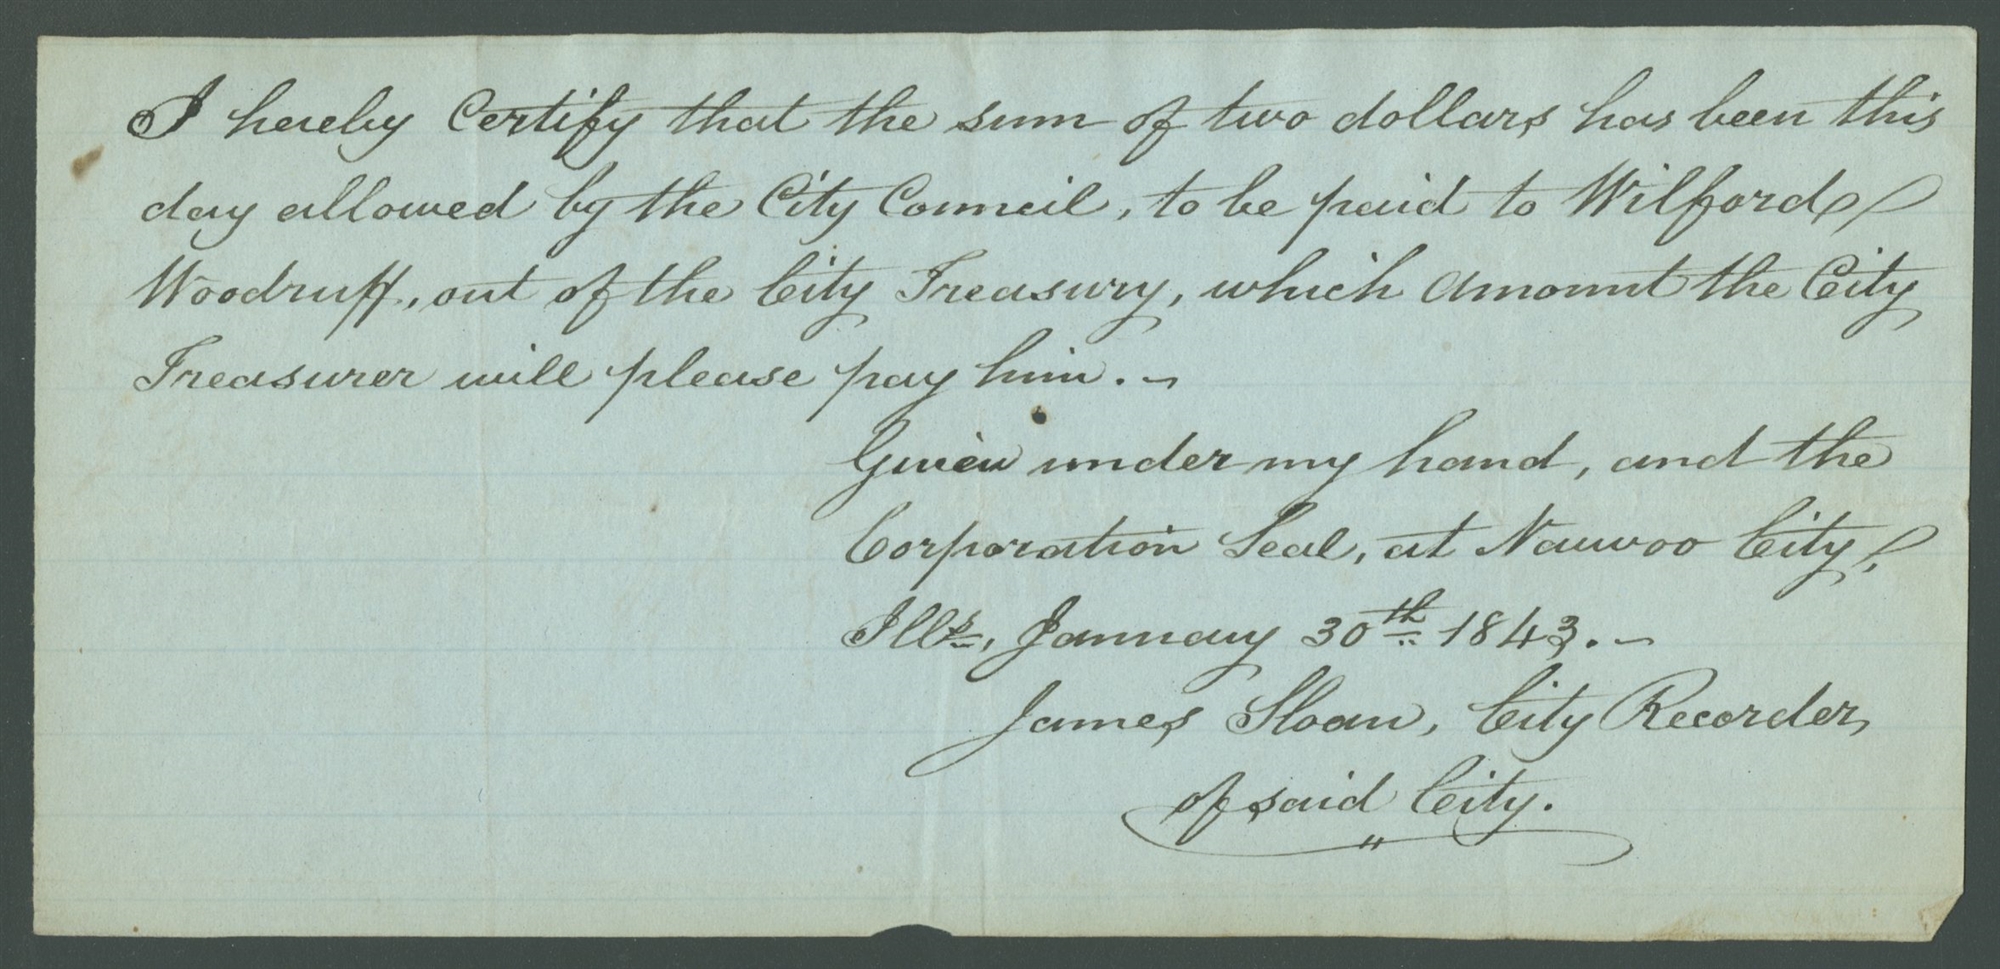 I hereby Certify that the sum of two dollars has been this
day allowed by the City Council, to be paid to Wilford
Woodruff, out of the City Treasury, which Amount the City
Treasurer will please pay him.
Given under my hand, and the
Corporation Seal, at Nauvoo City,
Ills, January 30th 1843.
James Sloan, City Recorder,
of said City.